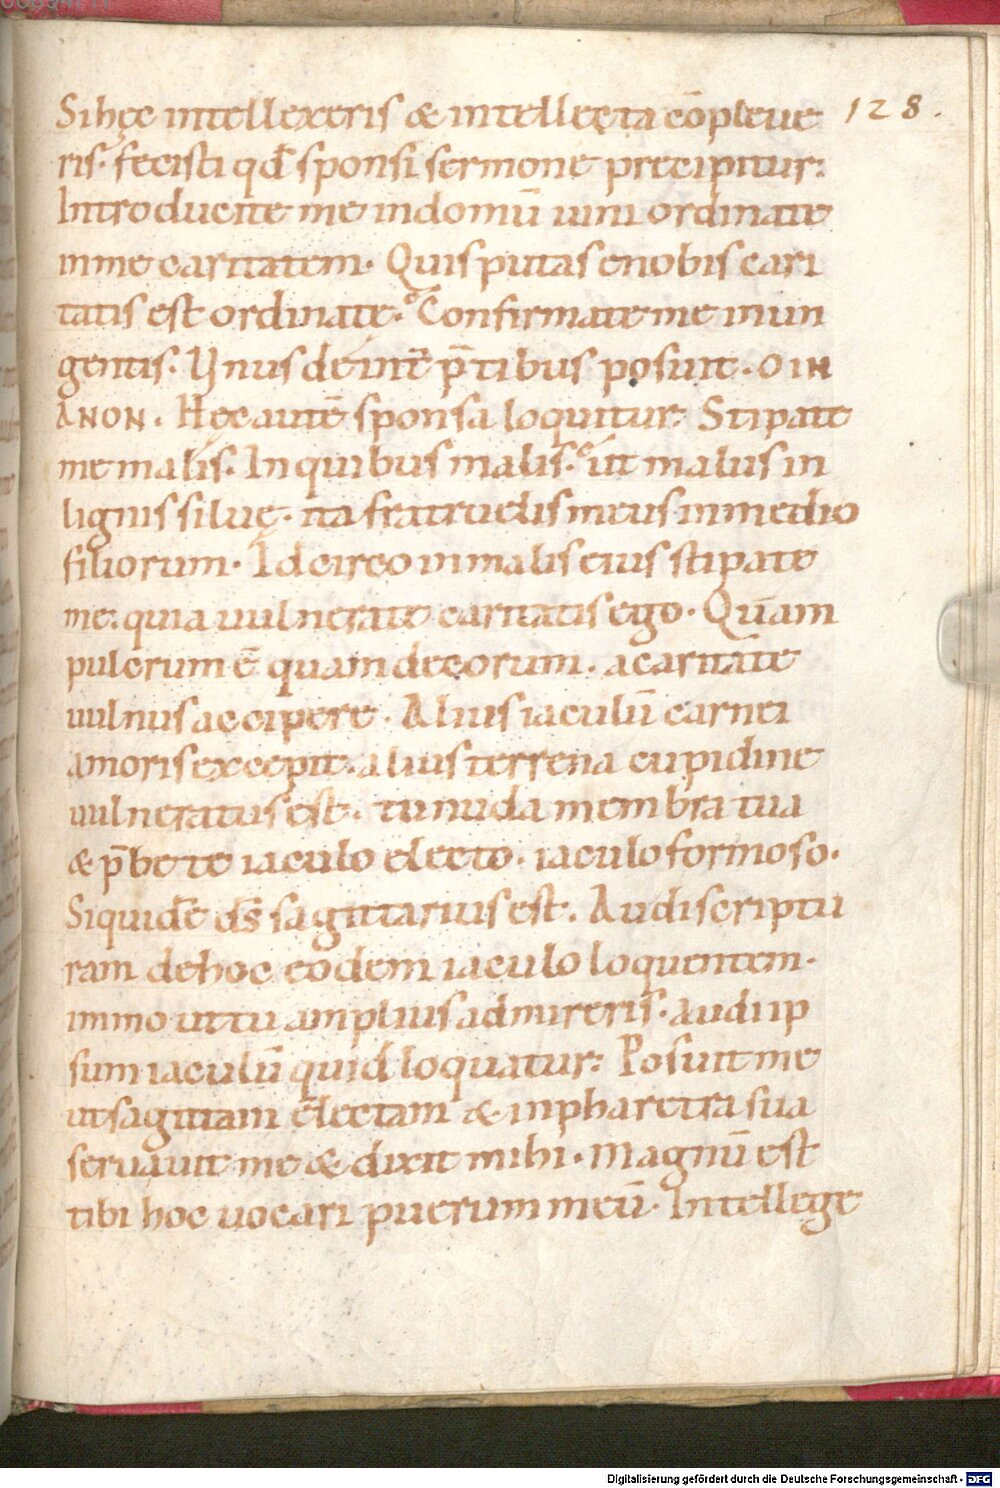 128.
Si hęc intellexeris & intellecta cōpleue
ris. fecisti qđ sponsi sermone precipitur:
Introducite me in domū uini ordinate
in me caritatem. Quis putas e nobis cari
tatis est ordinate. Confirmate me in un
gentis. Unus de intˉ pˉtibus posuit. OIN
ANON. Hęc autē sponsa loquitur: Stipate
me malis. In quibus malis. ut malus in
lignis siluę. ita fratruelis meus in medio
filiorum. Idcirco in malis eius stipate
me: quia uulnerate caritatis ego. Quam
pulcrum ē quam decorum. a caritate
uulnus accipere. Alius iaculū carnei
amoris excepit. alius terrena cupidine
uulneratus est. tu nuda membra tua
& p̄be te iaculo electo. iaculo formoso.
Siquidē ds̄ sagittarius est. Audi scriptu
ram de hoc eodem iaculo loquentem.
immo ut tu amplius admireris. audi ip
sum iaculū quid loquatur: Posuit me
ut sagittam electam & in pharetra sua
seruauit me & dixit mihi. Magnū est
tibi hoc uocari puerum meū. Intellege
Digitalisierung gefördert durch die Deutsche Forschungsgemeinschaft - DFG